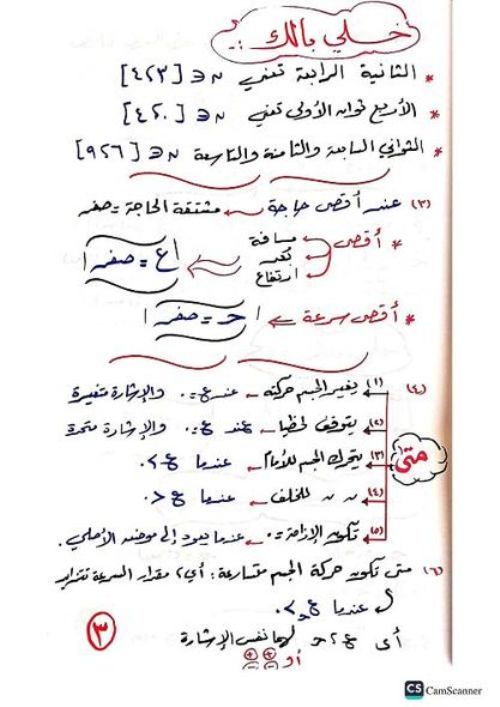 خلي بالك
* الثانية الرابعة تعني ن ∈ [٤،٣]
* الأربع ثوان الأولى تعني ن ∈ [٤،٠]
* الثواني السابعة والثامنة والتاسعة ن ∈ [٩،٦]
(٣) عند أقصى حاجة ← مشتقة الحاجة = صفر
* أقصى مسافة
بُعد
ارتفاع
ع = صفر
* أقصى سرعة ⇐ حـ = صفر
(٤) متى
(١) يغير الجسم حركته ← عند ع = ٠ والإشارة متغيرة
(٢) يتوقف لحظيا ← عند ع = ٠ والإشارة متحدة
(٣) يتحرك الجسم للأمام ← عندما ع > ٠
(٤) 〃 〃 للخلف ← عندما ع < ٠
(٥) تكون الإزاحة = ٠ ← عندما يعود إلى موضعه الأصلي.
(٦) متى تكون حركة الجسم متسارعة: أي مقدار السرعة تتزايد
عندما ع حـ > ٠
أي ع ، حـ لهما نفس الإشارة
⊕⊕ أو ⊖⊖
٣
CS CamScanner